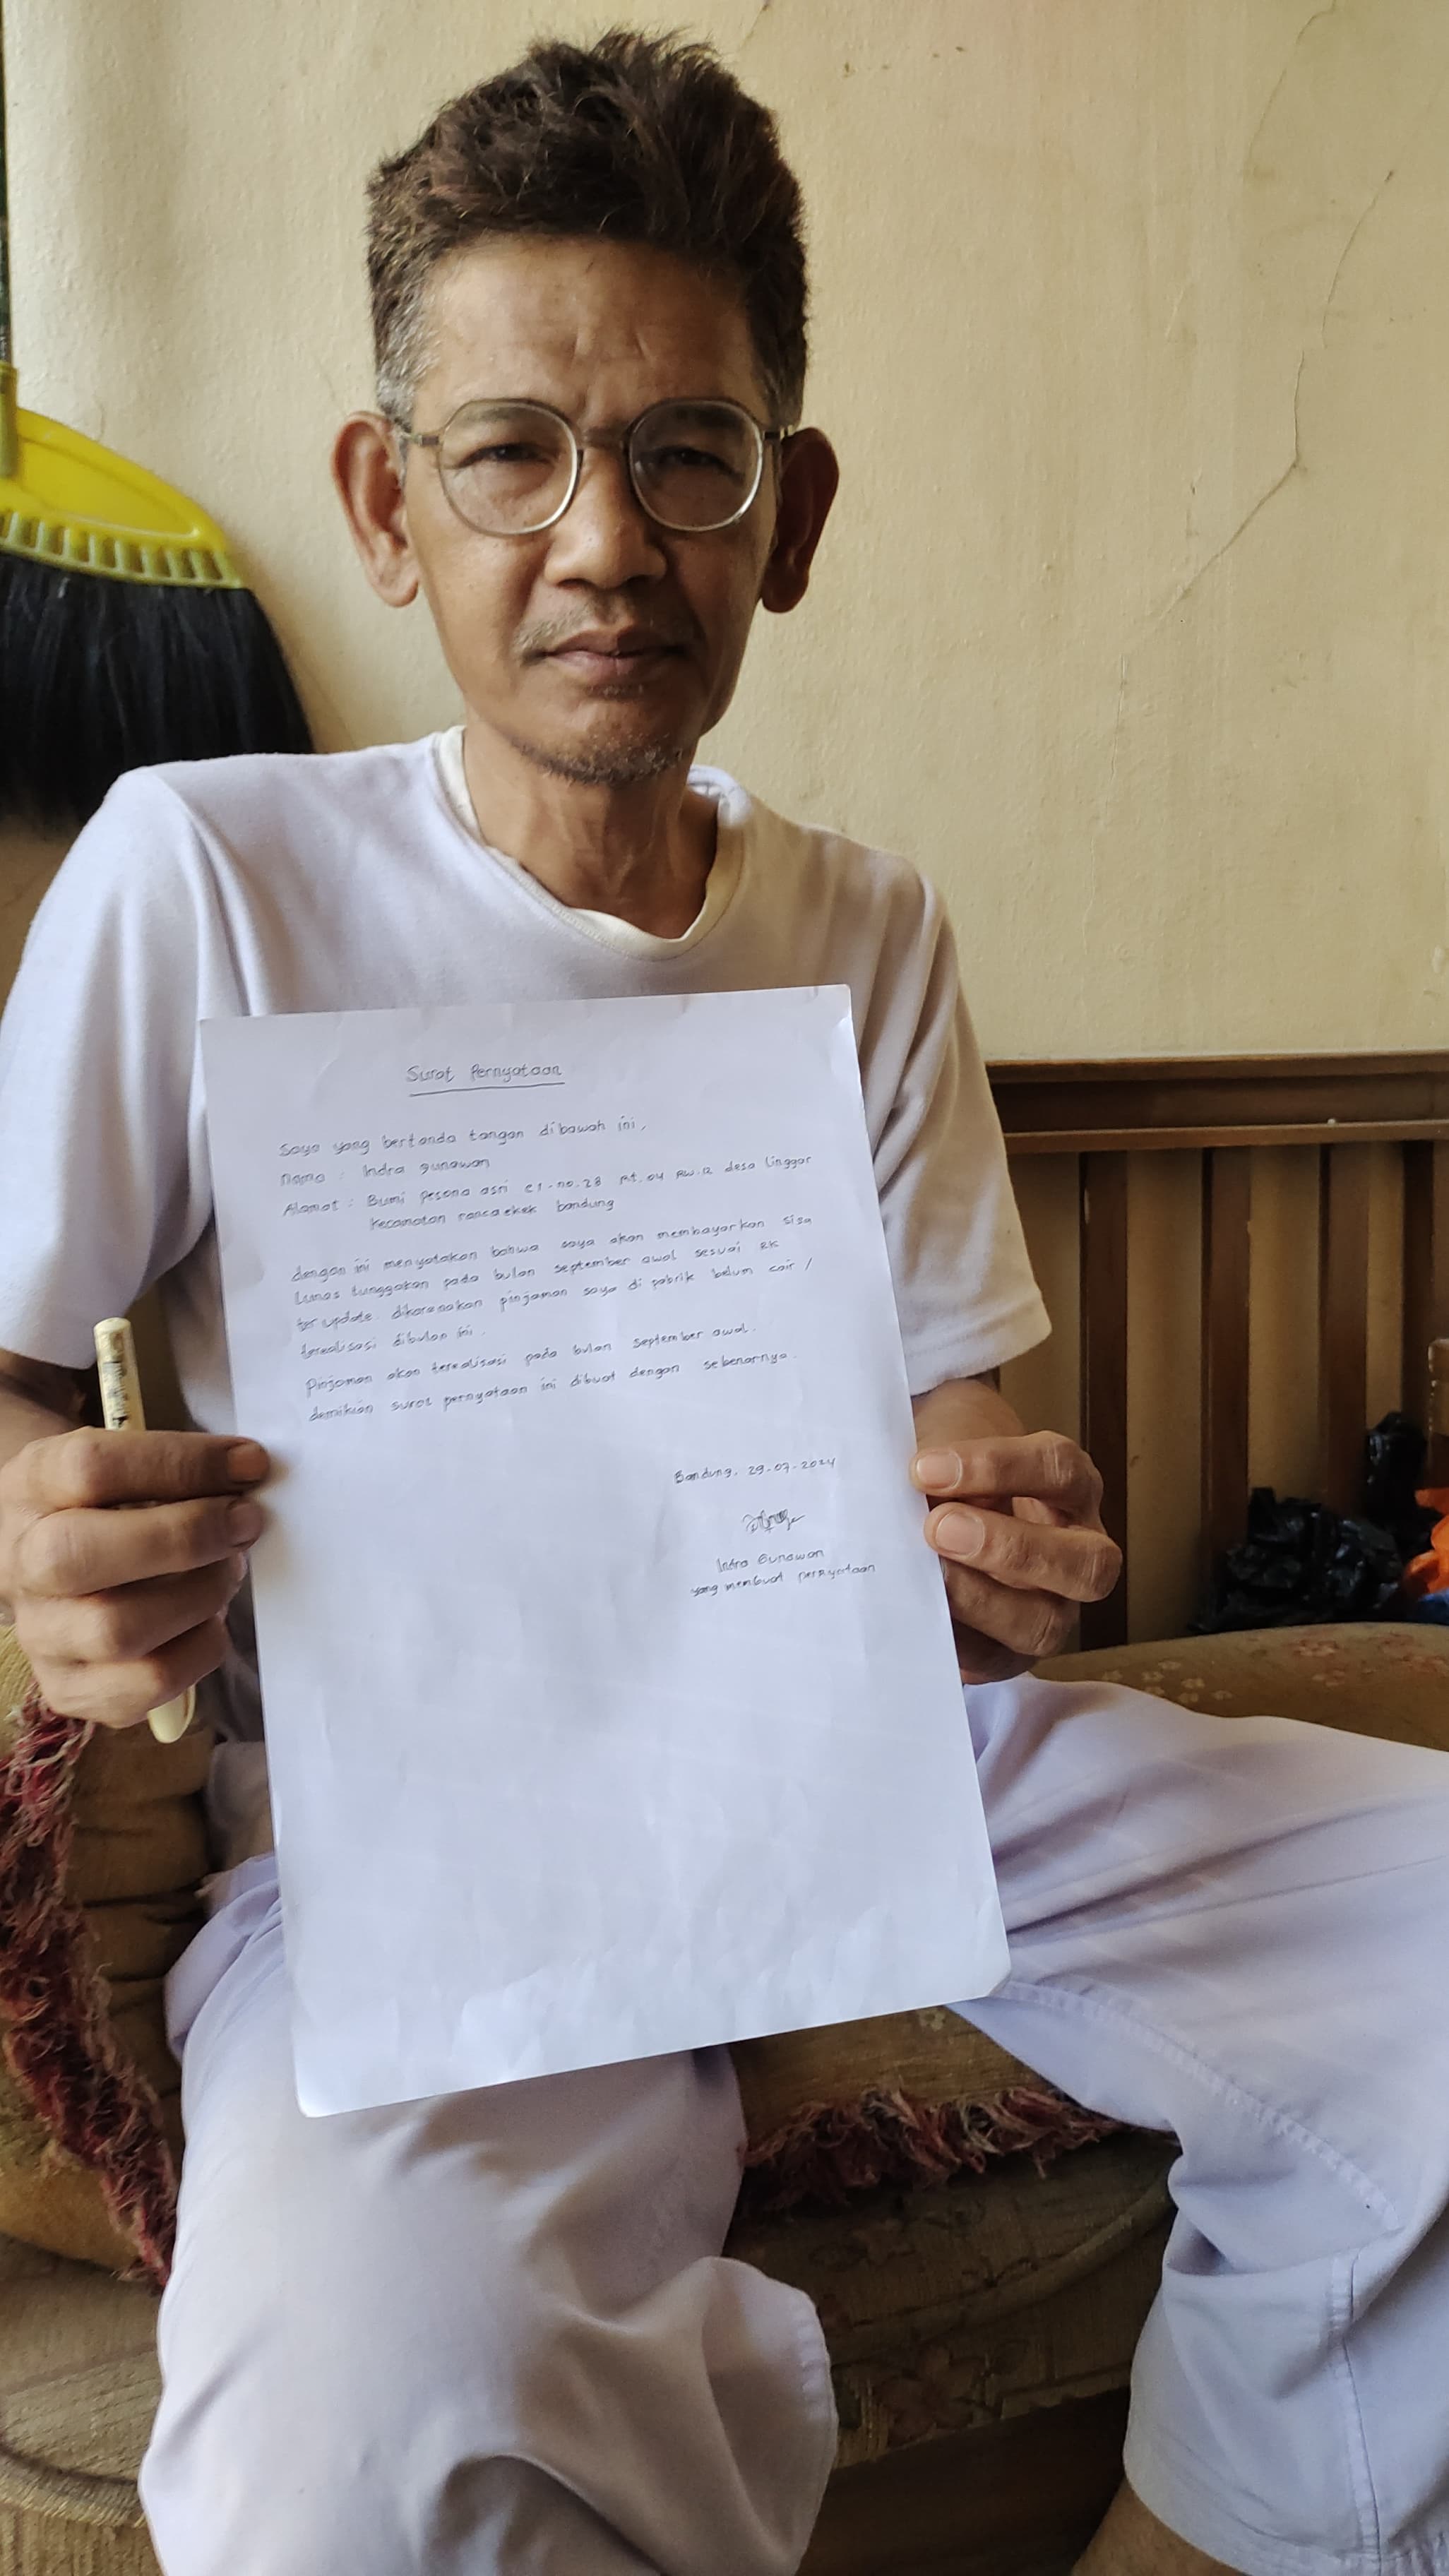 Surat Pernyataan
Saya yang bertanda tangan dibawah ini,
Nama : Indra gunawan
Alamat : Bumi pesona asri c1-no.28 Rt.04 RW.12 desa linggar
kecamatan rancaekek bandung
dengan ini menyatakan bahwa saya akan membayarkan sisa
Lunas tunggakan pada bulan september awal sesuai RK
ter update. dikarenakan pinjaman saya di pabrik belum cair /
terealisasi dibulan ini.
Pinjaman akan terealisasi pada bulan september awal.
demikian surat pernyataan ini dibuat dengan sebenarnya.
Bandung, 29-07-2024
Indra Gunawan
yang membuat pernyataan